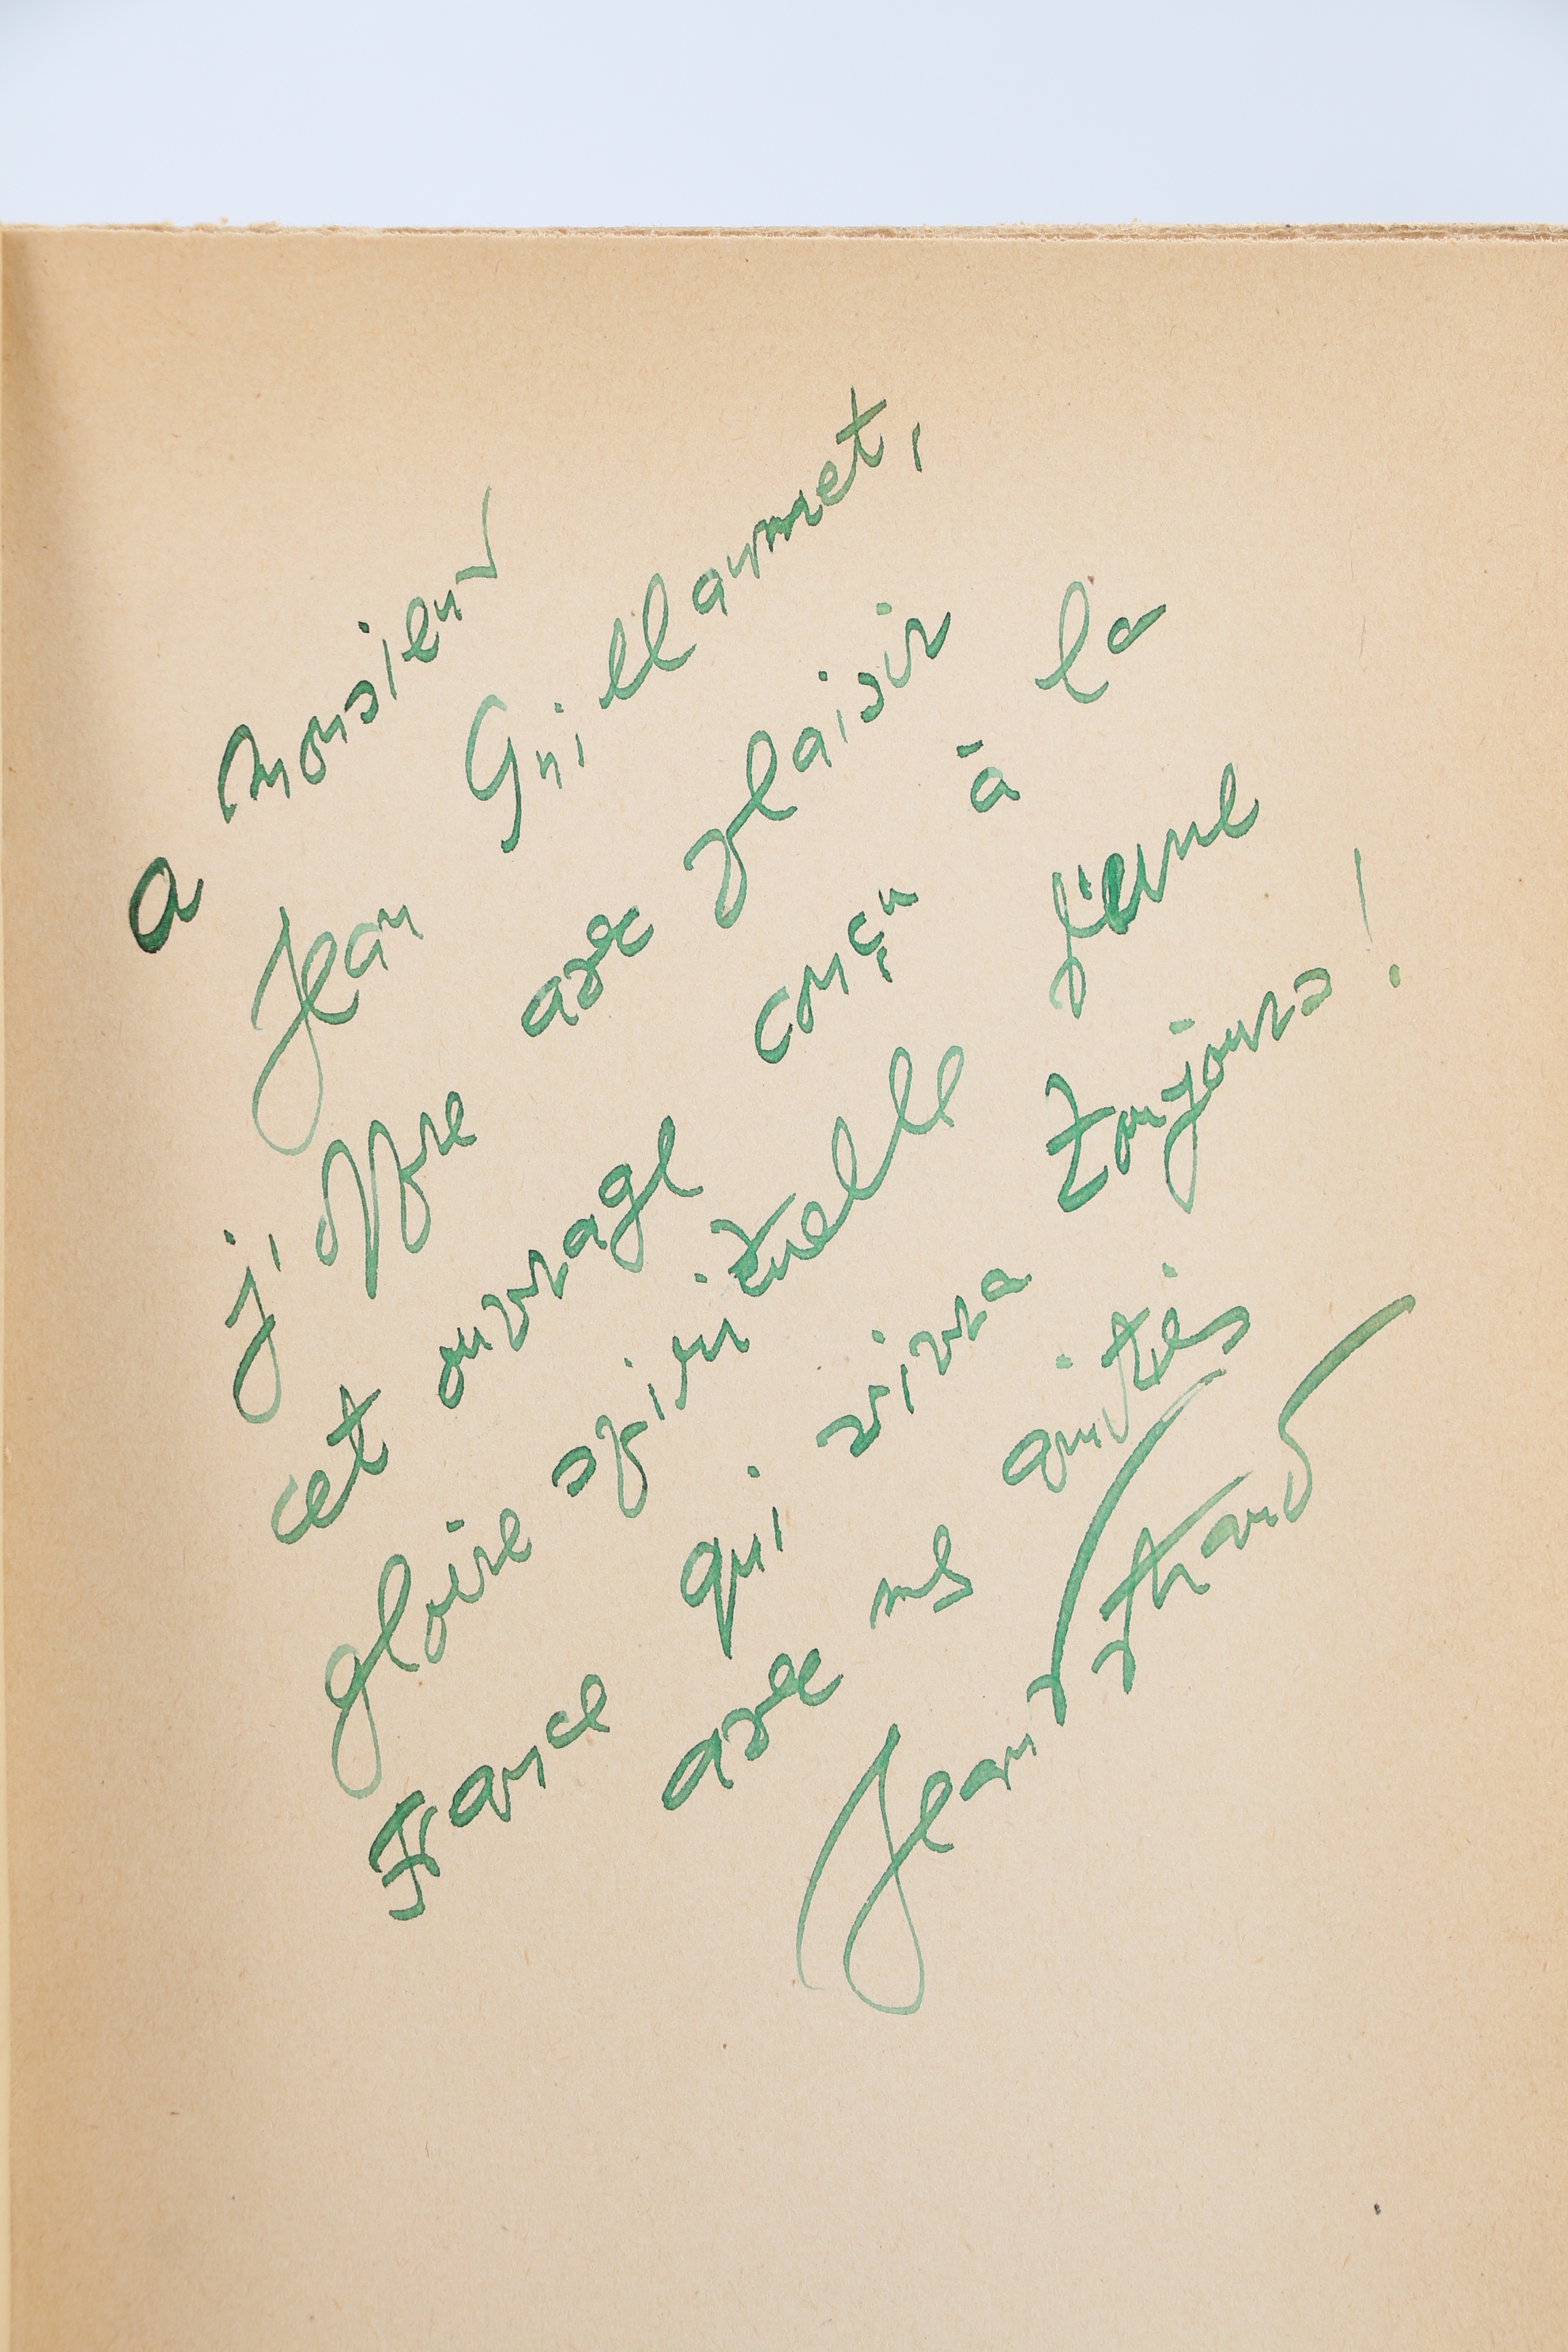 a monsieur
Jean Guillaumet,
j'offre avec plaisir
cet ouvrage conçu à la
gloire spirituelle d'une
France qui vivra toujours !
avec mes amitiés
Jean